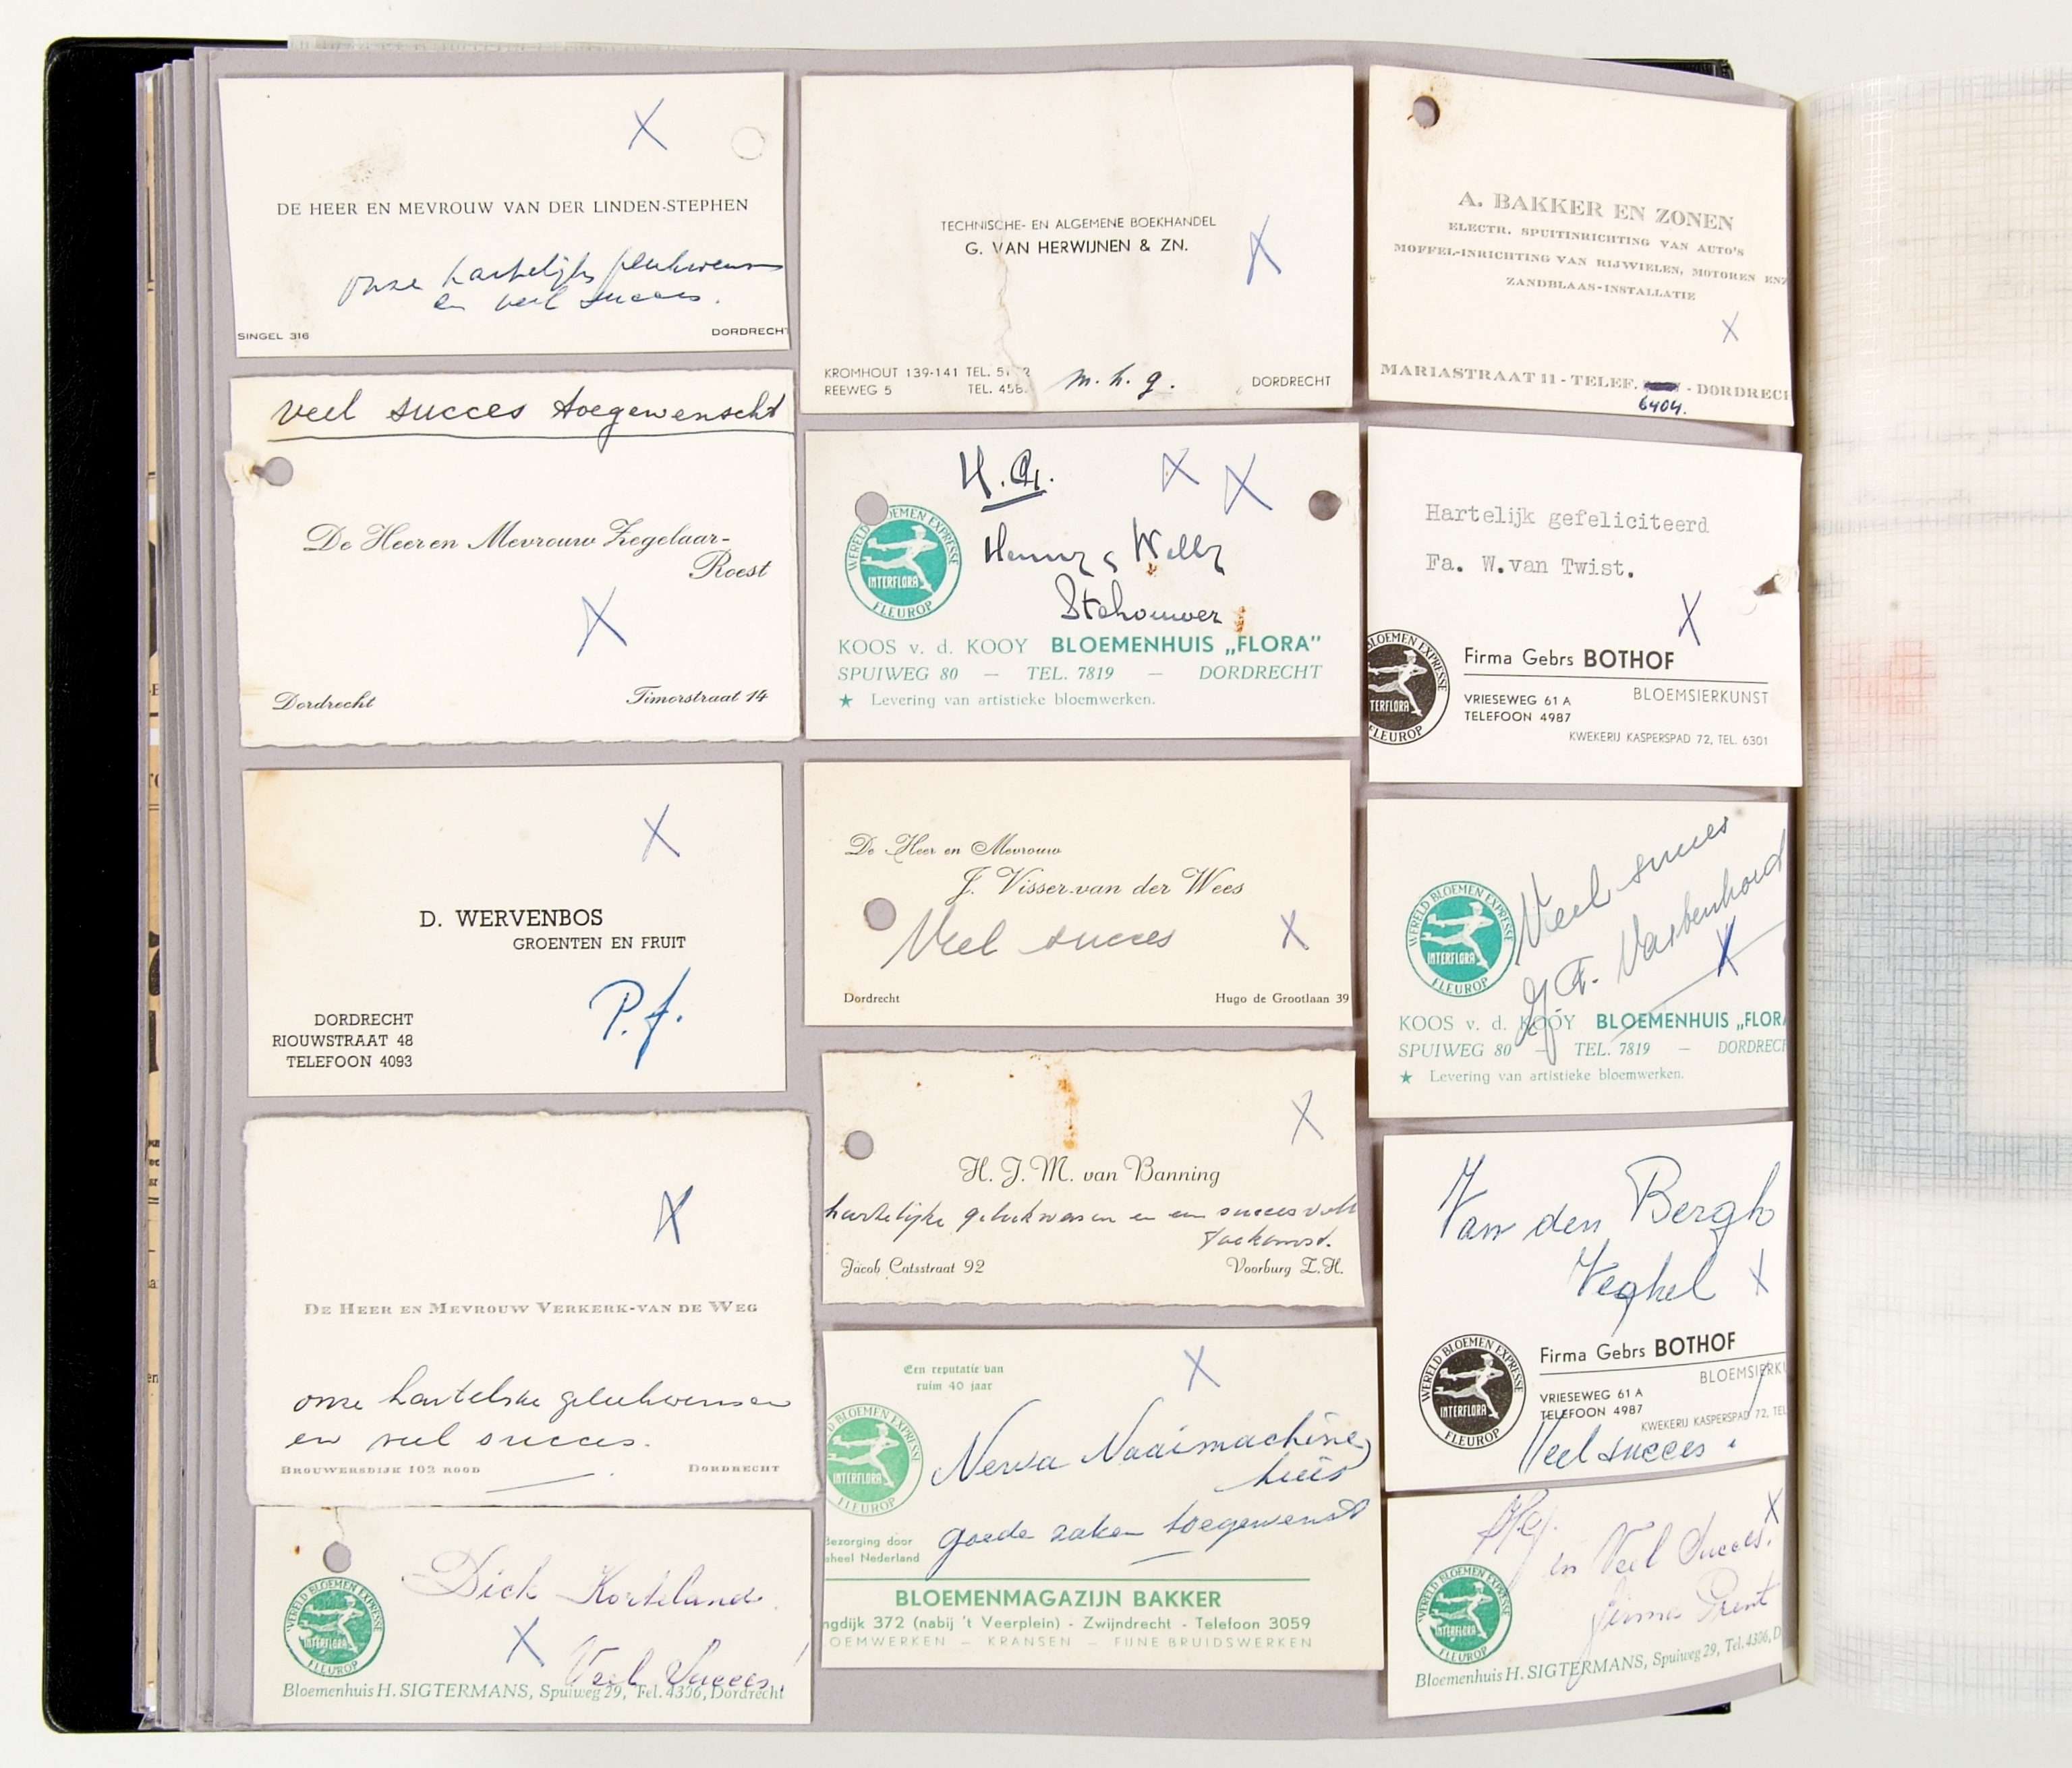 X
DE HEER EN MEVROUW VAN DER LINDEN-STEPHEN
onze hartelijke gelukwensen
en veel succes.
SINGEL 316 DORDRECHT
veel succes toegewenscht
De Heer en Mevrouw Zegelaar-
Roest
X
Dordrecht Timorstraat 14
X
D. WERVENBOS
GROENTEN EN FRUIT
P.f.
DORDRECHT
RIOUWSTRAAT 48
TELEFOON 4093
X
DE HEER EN MEVROUW VERKERK-VAN DE WEG
onze hartelijke gelukwensen
en veel succes.
BROUWERSDIJK 102 ROOD DORDRECHT
WERELD BLOEMEN EXPRESSE
INTERFLORA
FLEUROP
Dick Korteland.
X Veel Succes!
Bloemenhuis H. SIGTERMANS, Spuiweg 29, Tel. 4306, Dordrecht
TECHNISCHE- EN ALGEMENE BOEKHANDEL
G. VAN HERWIJNEN & ZN.
X
KROMHOUT 139-141 TEL. 51 2
REEWEG 5 TEL. 458 m.h.g. DORDRECHT
X X
WERELD BLOEMEN EXPRESSE
INTERFLORA
FLEUROP
Willy
Stehouwer
KOOS v. d. KOOY BLOEMENHUIS „FLORA”
SPUIWEG 80 — TEL. 7819 — DORDRECHT
★ Levering van artistieke bloemwerken.
De Heer en Mevrouw
J. Visser-van der Wees
Veel succes X
Dordrecht Hugo de Grootlaan 39
X
H. J. M. van Banning
hartelijke gelukwensen en een succesvolle
toekomst.
Jacob Catsstraat 92 Voorburg Z.H.
Een reputatie van
ruim 40 jaar
X
BLOEMEN EXPRESSE
INTERFLORA
FLEUROP
Nerva Naaimachine
huis
goede zaken toegewenst
Bezorging door
heel Nederland
BLOEMENMAGAZIJN BAKKER
ngdijk 372 (nabij 't Veerplein) - Zwijndrecht - Telefoon 3059
OEMWERKEN — KRANSEN — FIJNE BRUIDSWERKEN
A. BAKKER EN ZONEN
ELECTR. SPUITINRICHTING VAN AUTO'S
MOFFEL-INRICHTING VAN RIJWIELEN, MOTOREN ENZ
ZANDBLAAS-INSTALLATIE
X
MARIASTRAAT 11 - TELEF. - DORDRECH
6404.
Hartelijk gefeliciteerd
Fa. W.van Twist.
X
LOEMEN EXPRESSE
TERFLORA
FLEUROP
Firma Gebrs BOTHOF
BLOEMSIERKUNST
VRIESEWEG 61 A
TELEFOON 4987
KWEKERIJ KASPERSPAD 72, TEL. 6301
Veel succes
X
WERELD BLOEMEN EXPRESSE
INTERFLORA
FLEUROP
KOOS v. d. KOOY BLOEMENHUIS „FLORA
SPUIWEG 80 — TEL. 7819 — DORDRECH
★ Levering van artistieke bloemwerken.
Van den Bergh
Veghel X
WERELD BLOEMEN EXPRESSE
INTERFLORA
FLEUROP
Firma Gebrs BOTHOF
BLOEMSIERKU
VRIESEWEG 61 A
TELEFOON 4987
KWEKERIJ KASPERSPAD 72, TEL
Veel succes!
X
en Veel Succes.
firma Prent
WERELD BLOEMEN EXPRESSE
INTERFLORA
FLEUROP
Bloemenhuis H. SIGTERMANS, Spuiweg 29, Tel. 4306, D